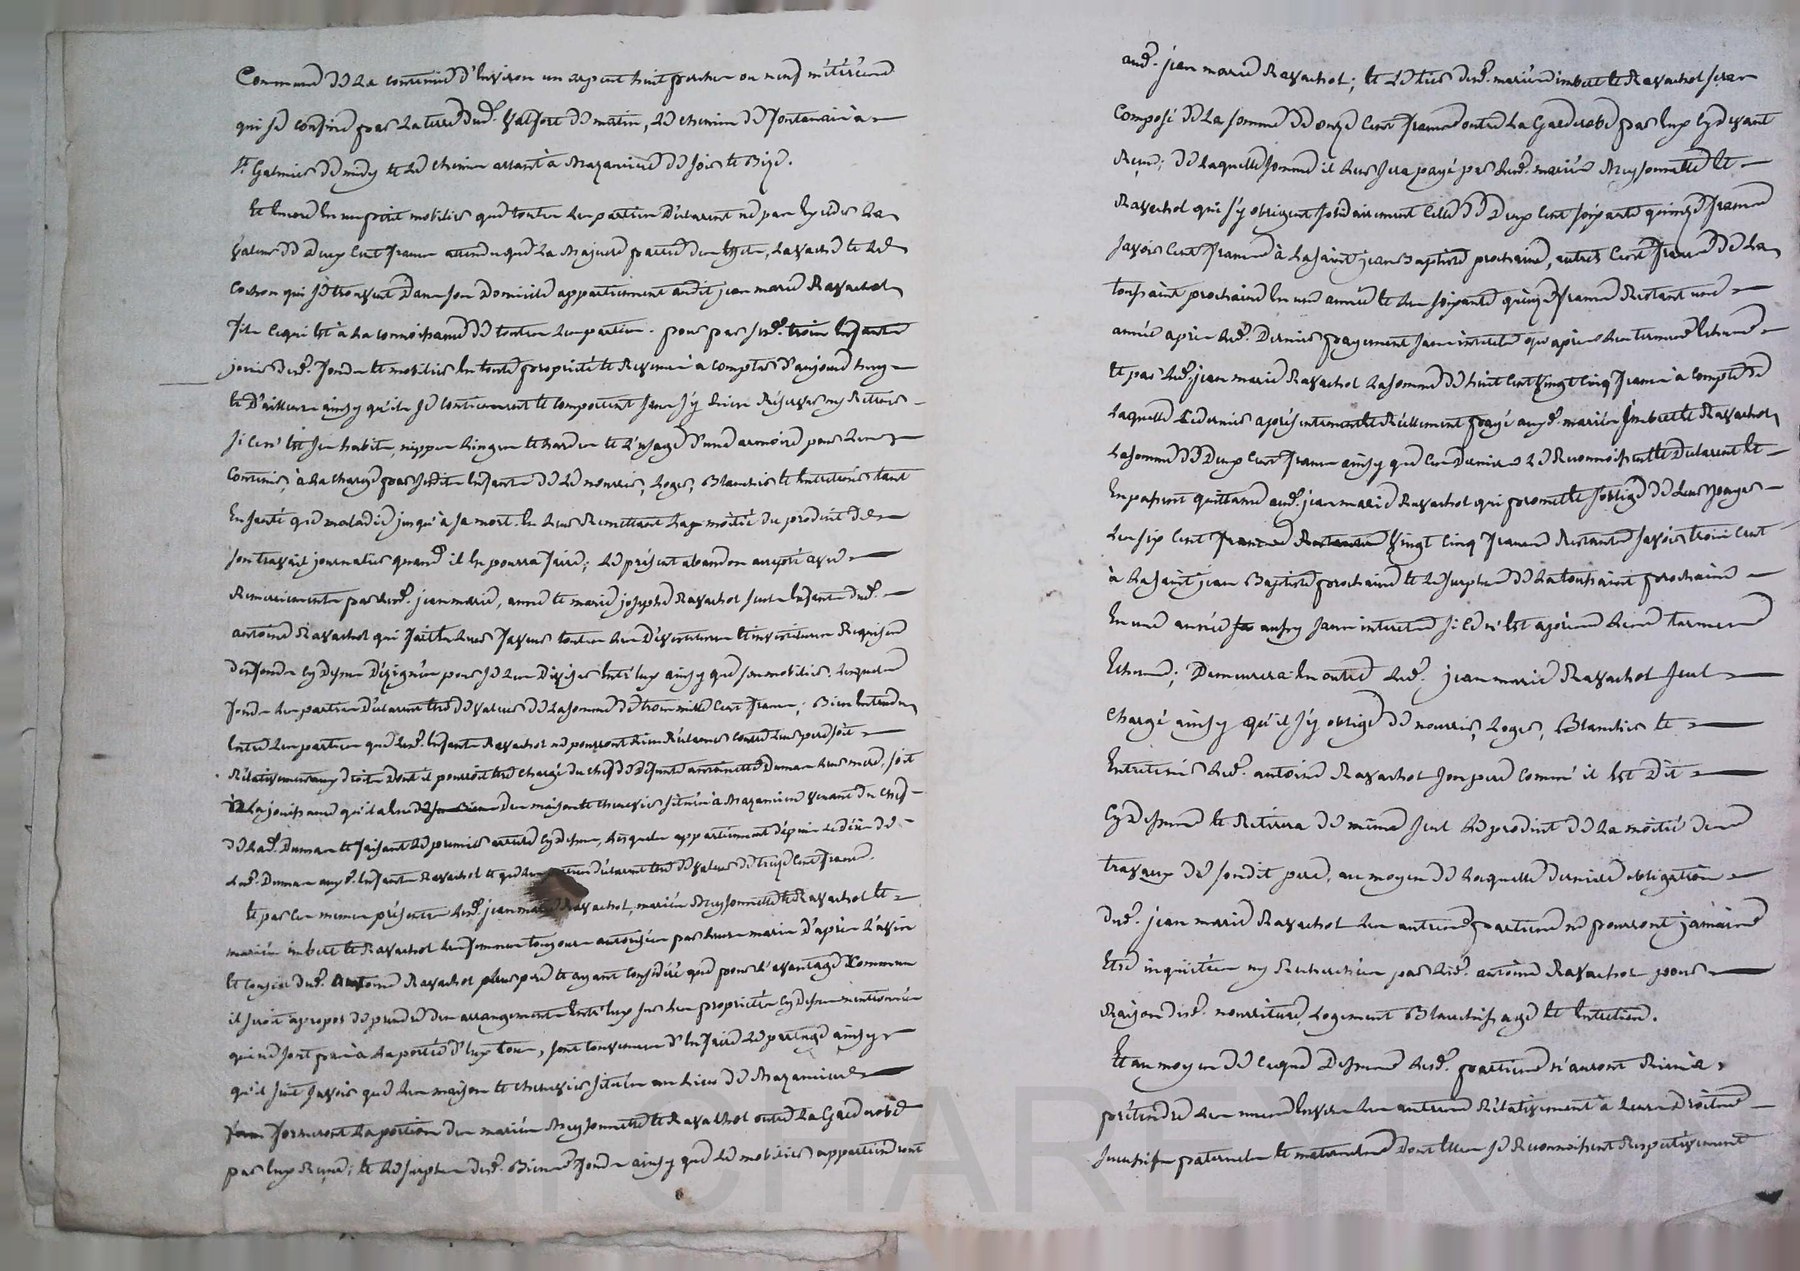 Commune de la contenue d'environ un arpent huit perches ou neuf métérées
qui se confine par la terre dud. Valfort de matin, le chemin de fontanair à
St. Galmier de midy et le chemin allant à Mazanieud de soir et Bize.
Et encore en un petit mobilier que toutes les parties déclarent ne pas excéder la
valeur de deux cent francs attendu que la majeure partie des effets, la vache et le
cochon qui se trouvent dans son domicile appartiennent audit jean marie Ravachol
fils ce qui est à la connoissance de toutes les parties. pour par sesd. trois enfants
jouir desd. fonds et mobilier en toute propriété et revenus à compter d'aujourd'huy
et d'ailleurs ainsy qu'ils se contiennent et comportent sans s'y rien réserver ny retenir
si ce n'est ses habits, nippes linges et hardes et l'usage d'une armoire pour les y
contenir, à la charge par sesdits enfants de le nourrir, loger, blanchir et entretenir tant
en santé que maladie jusqu'à sa mort en leur remettant la moitié du produit de
son travail journalier quand il en pourra faire; le présent abandon accepté avec
remerciements par lesd. jean marie, anne et marie josephe Ravachol seuls enfants dud.
antoine Ravachol qui fait en leur faveur toutes les dévestitures et investitures requises
des fonds cy dessus désignés pour se les diviser entr'eux ainsy que son mobilier. lesquels
fonds les parties déclarent être de valeur de la somme de trois mille cent francs; bien entendu
entre les parties que lesd. enfants Ravachol ne pourront rien réclamer contre leur père soit
rélativement aux droits dont il pourroit être chargé du chef de défunte antoinette Dumas leur mère, soit
à la jouissance qu'il a eu des maison et chenevier situés à Mazanieud venant du chef
de lad. Dumas et faisant le premier article cy dessus, lesquels appartiennent dépuis le décès de
lad. Dumas auxd. enfants Ravachol et que les parties déclarent être de valeur de treize cent francs.
Et par ces mêmes présentes lesd. jean marie Ravachol, mariés Meyssonnette et Ravachol et
mariés imbert et Ravachol les femmes toujours autorisées par leurs maris d'après l'avis
et conseil dud. antoine Ravachol leur père et ayant considéré que pour l'avantage commun
il seroit apropos de prendre des arrangements entr'eux sur les propriétés cy dessus mentionnées
qui ne sont pas à la portée d'eux tous, sont convenus d'en faire le partage ainsy
qu'il suit savoir que les maison et chenevier situés au lieu de Mazanieud
formeront la portion des mariés Meyssonnette et Ravachol outre la Garderobe
par eux reçue; et le surplus desd. biens fonds ainsy que le mobilier appartiendront
aud. jean marie Ravachol; et le tiers desd. mariés imbert et Ravachol sera
composé de la somme de onze cent francs outre la Garderobe par eux cy devant
reçue; de laquelle somme il leur sera payé par lesd. mariés Meyssonnette et
Ravachol qui s'y obligent solidairement celle de deux cent soixante quinze francs
savoir cent francs à la saint jean Baptiste prochaine, autres cent francs de la
toussaint prochaine en une année et les soixante quinze francs restant une
année après led. dernier payement sans intérêts qu'après les termes échus
et par led. jean marie Ravachol la somme de huit cent vingt cinq francs à compte de
laquelle ce dernier a présentement et réellement payé auxd. mariés imbert et Ravachol
la somme de deux cent francs ainsy que ces derniers le reconnoissent et déclarent et
en passent quittance aud. jean marie Ravachol qui promet et s'oblige de leur payer
les six cent vingt cinq francs restants savoir trois cent
à la saint jean Baptiste prochaine et le surplus de la toussaint prochaine
en une année aussy sans intérêts si ce n'est après les termes
échus; Demeurera en outre led. jean marie Ravachol seul
chargé ainsy qu'il s'y oblige de nourrir, loger, blanchir et
entretenir led. antoine Ravachol son père comme il est dit
cy dessus et retirera de même seul le produit de la moitié des
travaux de sondit père, au moyen de laquelle dernière obligation
dud. jean marie Ravachol les autres parties ne pourront jamais
etre inquiétées ny recherchées par led. antoine Ravachol pour
raison desd. nourriture, logement blanchissage et entretien.
Et au moyen de ce que dessus lesd. parties n'auront rien à
prétendre les unes envers les autres rélativement à leurs droits
successifs paternels et maternels dont elles se reconnoissent respectivement
CHAREYRON